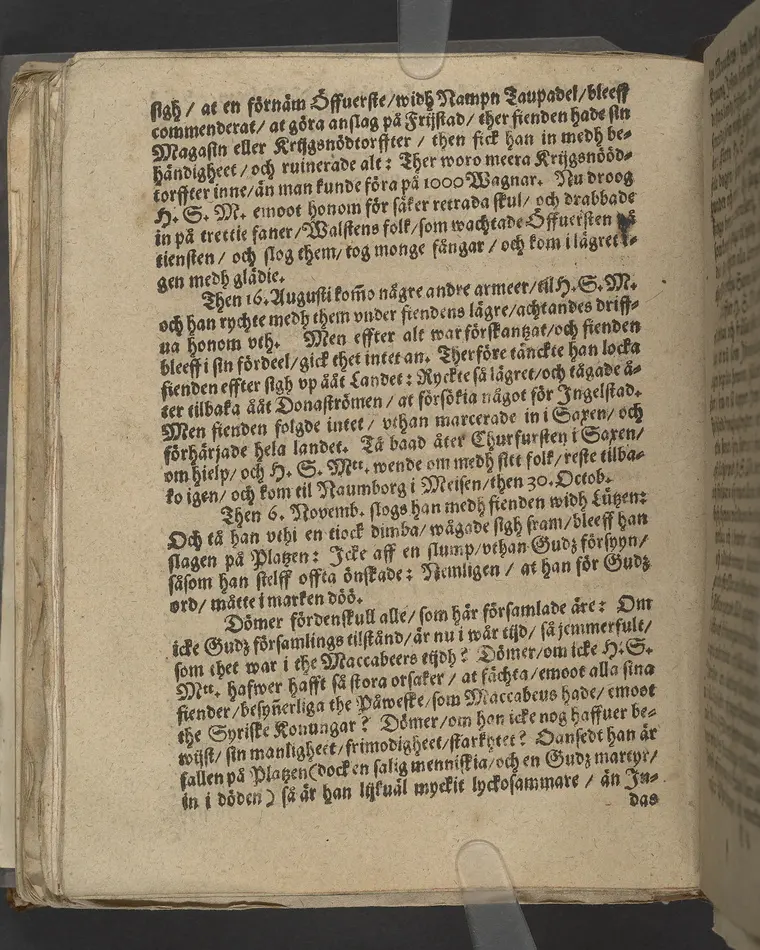 sigh / at en förnäm Öffuerste/widh Nampn Taupadel/bleeff
commenderat/ at göra anslag på Frijstad/ ther fienden hade sin
Magasin eller Krijgsnödtorffter / then fick han in medh be-
händigheet / och ruinerade alt: Ther woro meera Krijgsnööd-
torffter inne/än man kunde föra på 1000 Wagnar. Nu droog
H. S. M. emoot honom för säker retrada skul/ och drabbade
in på trettie faner/Walstens folk/som wachtade Öffuersten på
tiensten / och slog them/tog monge fångar / och kom i lägret i-
gen medh glädie.
Then 16. Augusti kom̃o någre andre armeer/til H. S. M.
och han rychte medh them vnder fiendens lägre/achtandes driff-
ua honom vth. Men effter alt war förskantzat/och fienden
bleeff i sin fördeel/gick thet intet an. Therföre tänckte han locka
fienden effter sigh vp åât Landet: Ryckte så lägret/och tågade å-
ter tilbaka åât Donaströmen / at försökia något för Ingelstad.
Men fienden folgde intet / vthan marcerade in i Saxen/ och
förhärjade hela landet. Tå baad åter Churfursten i Saxen/
om hjelp/ och H. S. Mtt. wende om medh sitt folk/reste tilba-
ko igen/ och kom til Naumborg i Meisen/then 30. Octob.
Then 6. Novemb. slogs han medh fienden widh Lützen:
Och tå han vthi en tiock dimba/ wågade sigh fram/bleeff han
slagen på Platzen: Icke aff en slump/vthan Gudz försyyn/
såsom han stelff offta önskade: Nemligen / at han för Gudz
ord/ måtte i marken döö.
Dömer fördenskull alle/ som här församlade äre: Om
icke Gudz församlings tilstånd/är nu i wår tijd/ så jemmerfult/
som thet war i the Maccabeers tijdh? Dömer/om icke H. S.
Mtt. hafwer hafft så stora orsaker / at fächta/emoot alla sina
fiender/besyñerliga the Påweske/som Maccabeus hade/ emoot
the Syriske Konungar? Dömer/om han icke nog haffuer be-
wijst/ sin manligheet/frimodigheet/starkhet? Oansedt han är
fallen på Platzen(dock en salig menniskia/och en Gudz martyr/
in i döden) så är han lijkuäl myckit lyckosammare / än Ju-
das